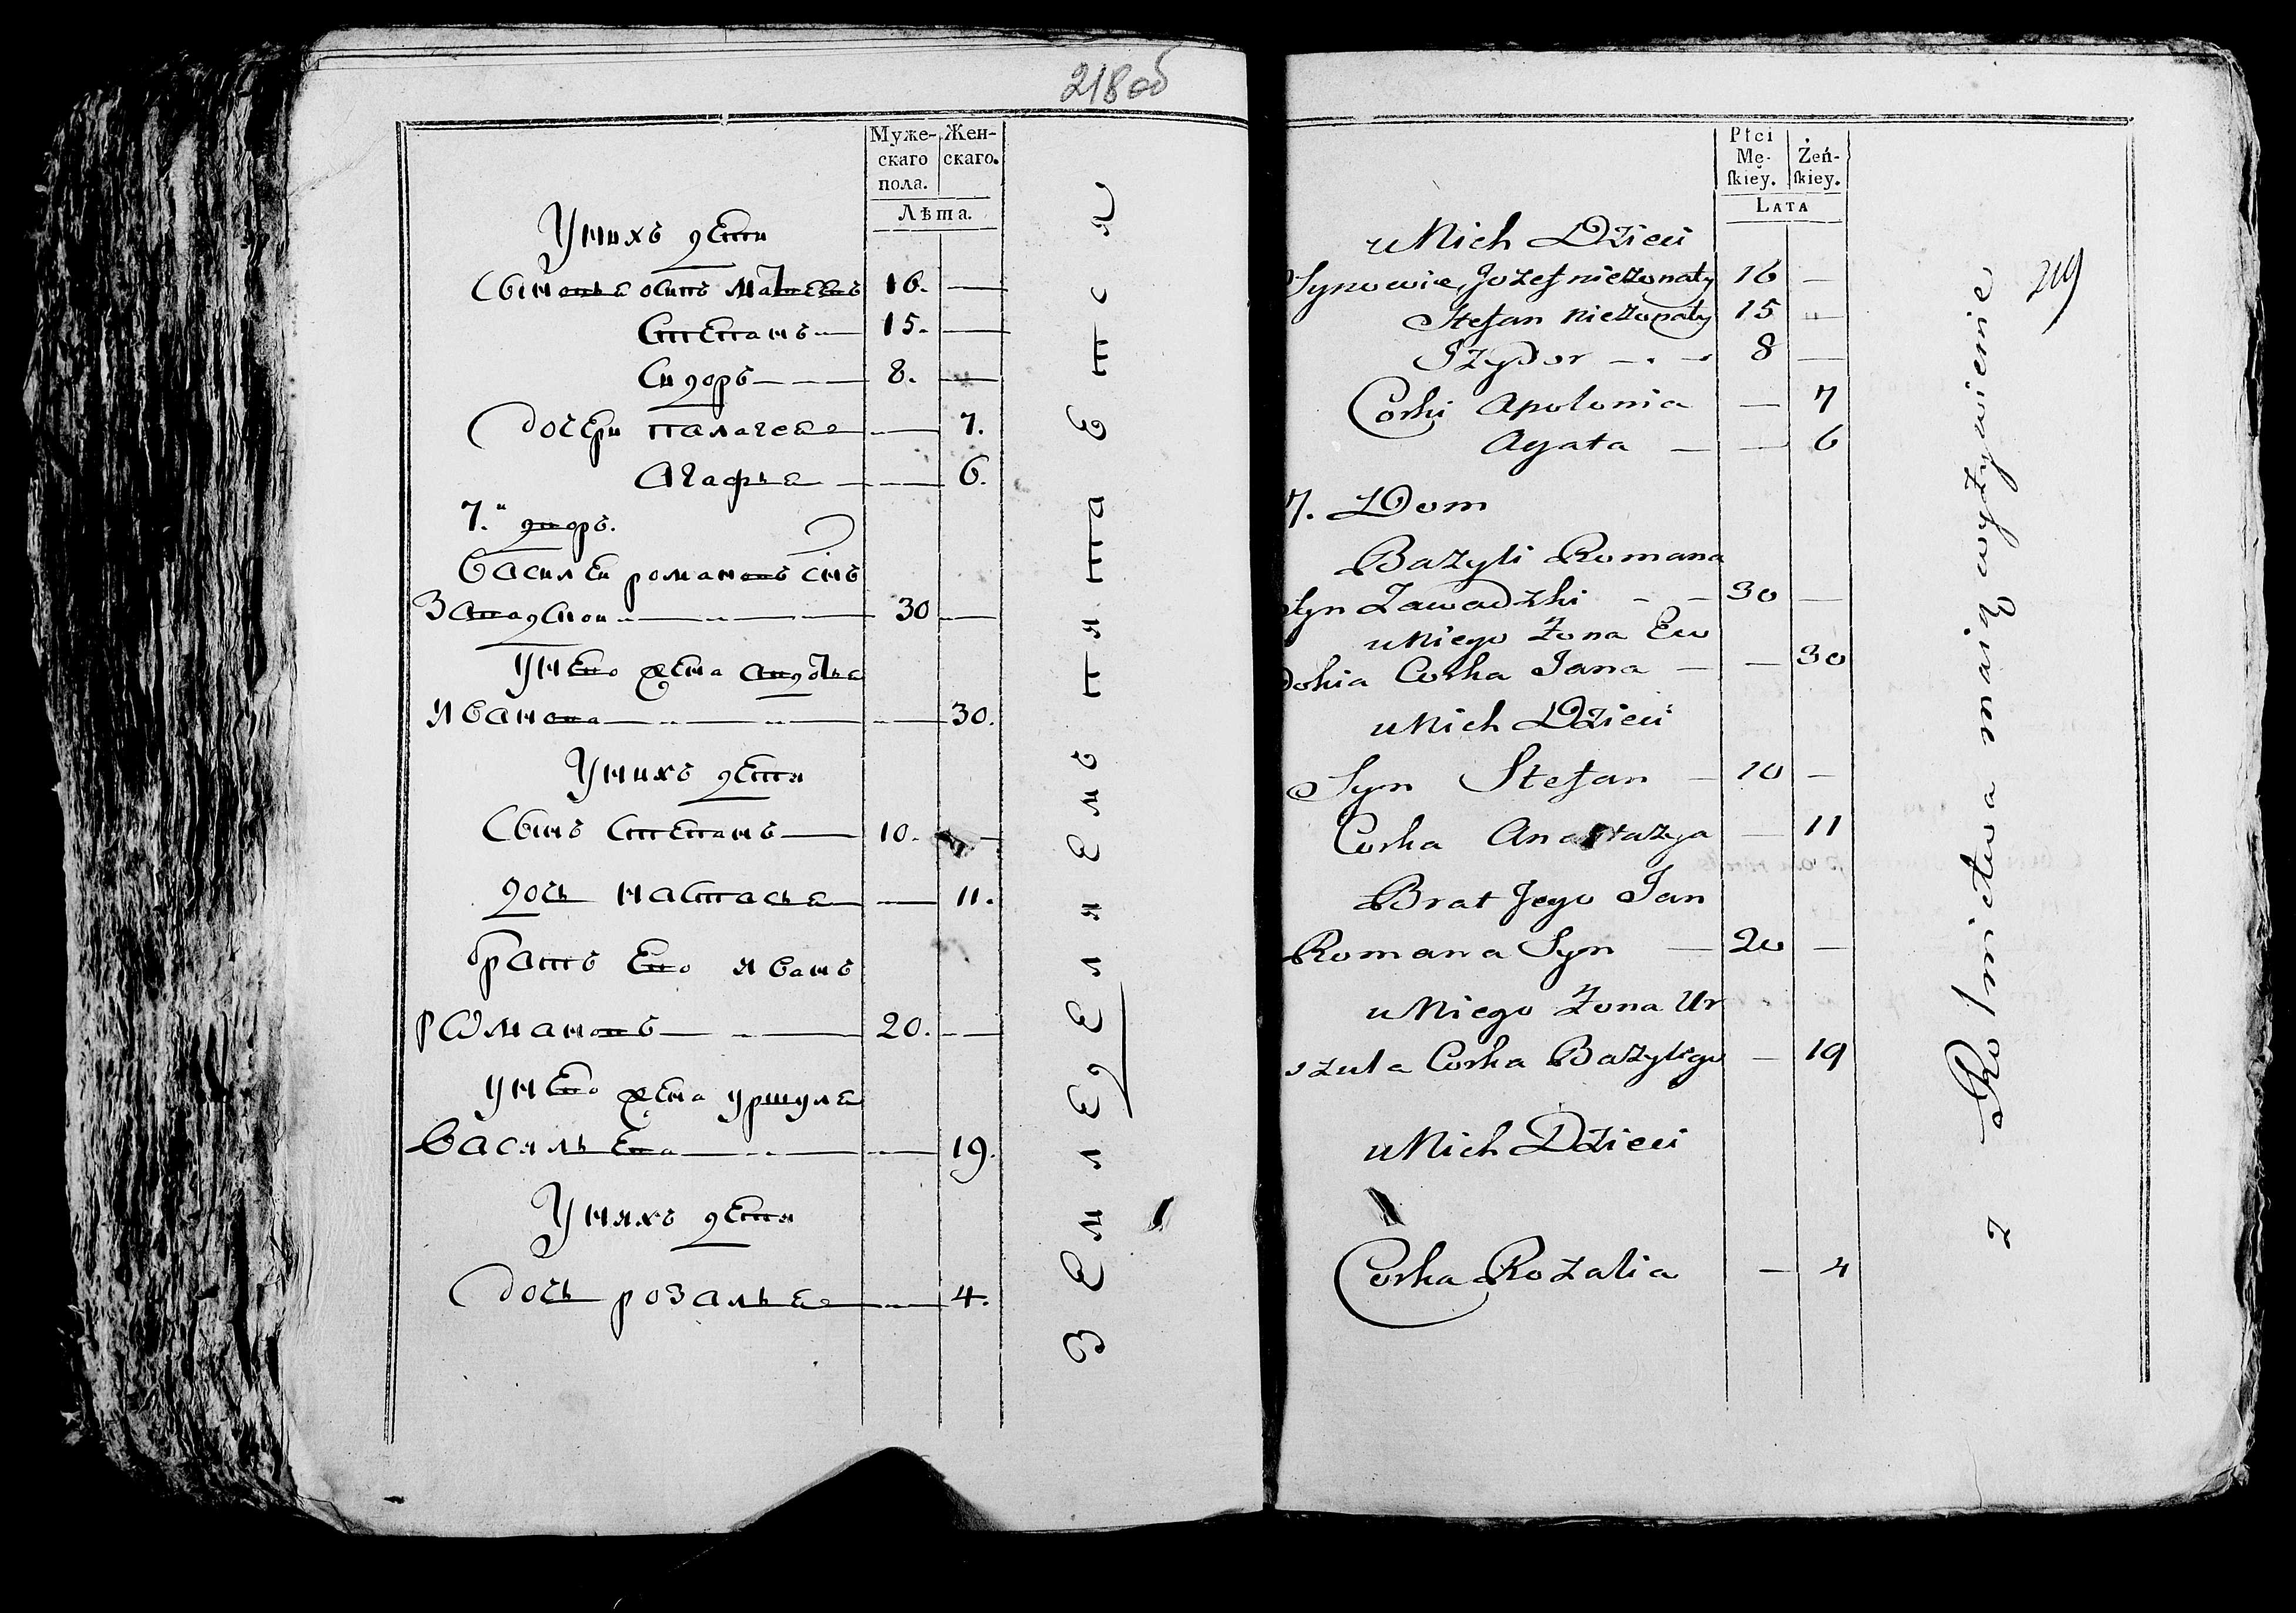 218 об
Муже- Жен-
скаго скаго.
пола.
Лѣта.
У нихъ дети
Сыновья осипъ матвевъ 16. —
Степанъ — 15. —
Сидоръ — — — 8. —
дочери палагея — 7.
Агафья — — 6.
7.й дворъ.
Василеи романовъ снъ
Завадскои — — 30 —
У него жена авдотья
Иванова — — — 30.
У нихъ дети
Сынъ Степанъ — 10. —
дочь настасья — 11.
братъ Его Иванъ
романовъ — — 20. —
у него жена уршуля
Васильева — — — 19.
У нихъ дети
дочь розалья — 4.
Земледелиемъ питаетса
Płci
Mę- Żeń-
skiey. skiey.
LATA
219
u Nich Dzieci
Synowie Jozef nieżonaty 16 —
Stefan nieżonaty 15 —
Jzydor — . — 8 —
Corki Apolonia — 7
Agata — — 6
7. Dom
Bazyli Romana
Syn Zawadzki - - 30 —
u Niego Żona Ew
dokia Corka Jana — — 30
u Nich Dzieci
Syn Stefan — 10 —
Corka Anastazya — 11
Brat Jego Jan
Romana Syn — 20 —
u Niego Żona Ur
szula Corka Bazylego — 19
u Nich Dzieci
Corka Rozalia — 4
z Rolnictwa maią wyżywienie